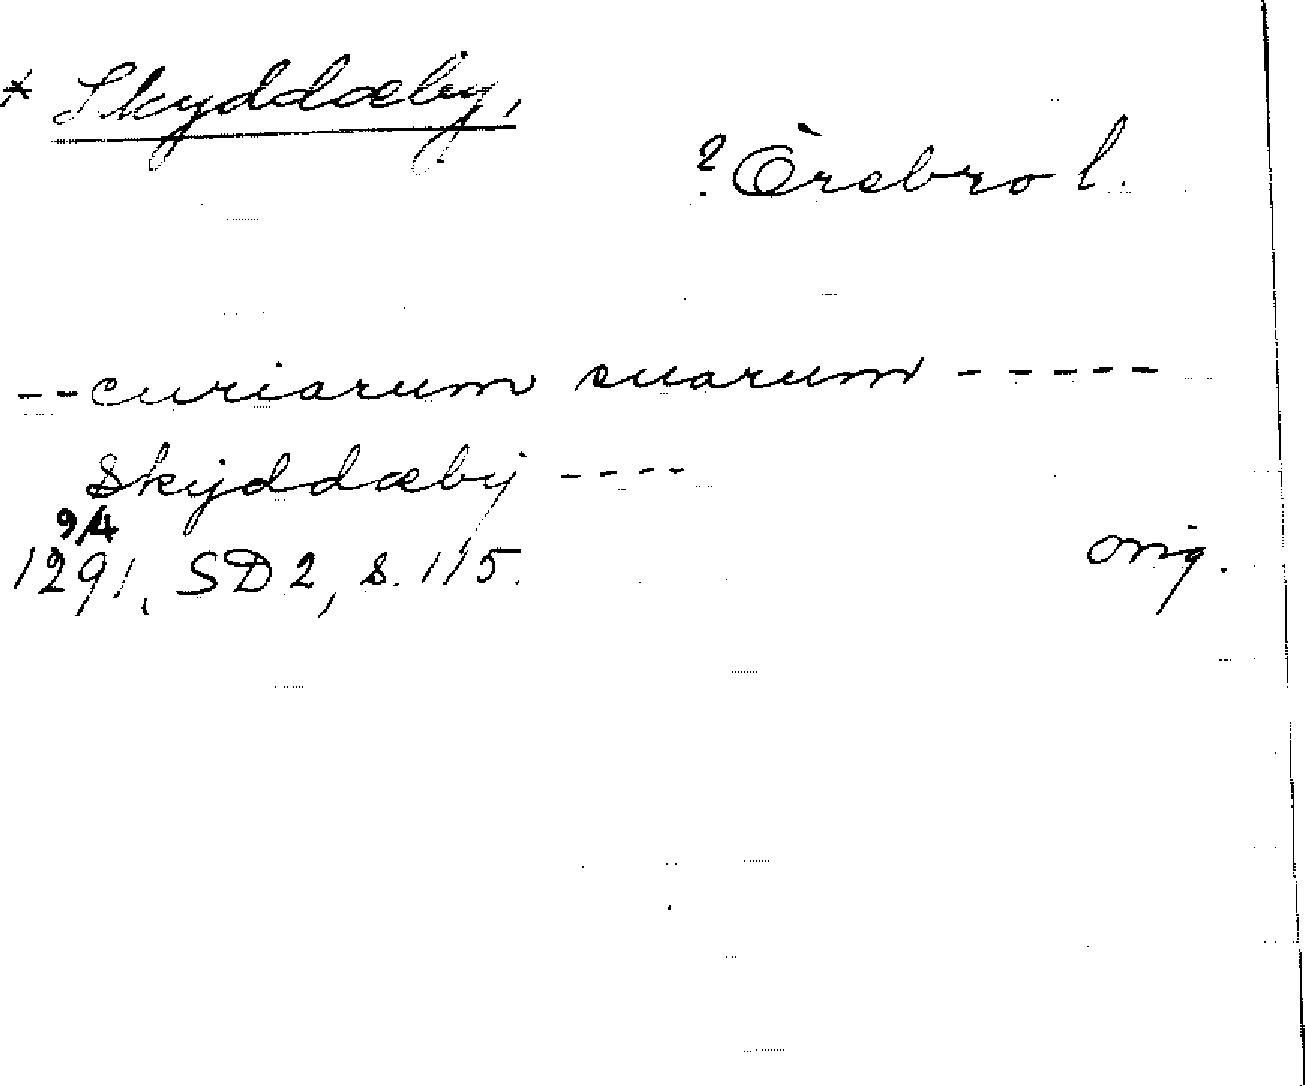 * Skyddæby,
? Örebro l.
--curiarum suarum -----
Skyddæby ----
9/4
1291, SD 2, s. 115.
orig.